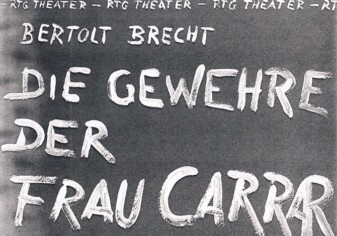 – RTG THEATER – RTG THEATER – RTG THEATER – RT
BERTOLT BRECHT
DIE GEWEHRE
DER
FRAU CARRAR